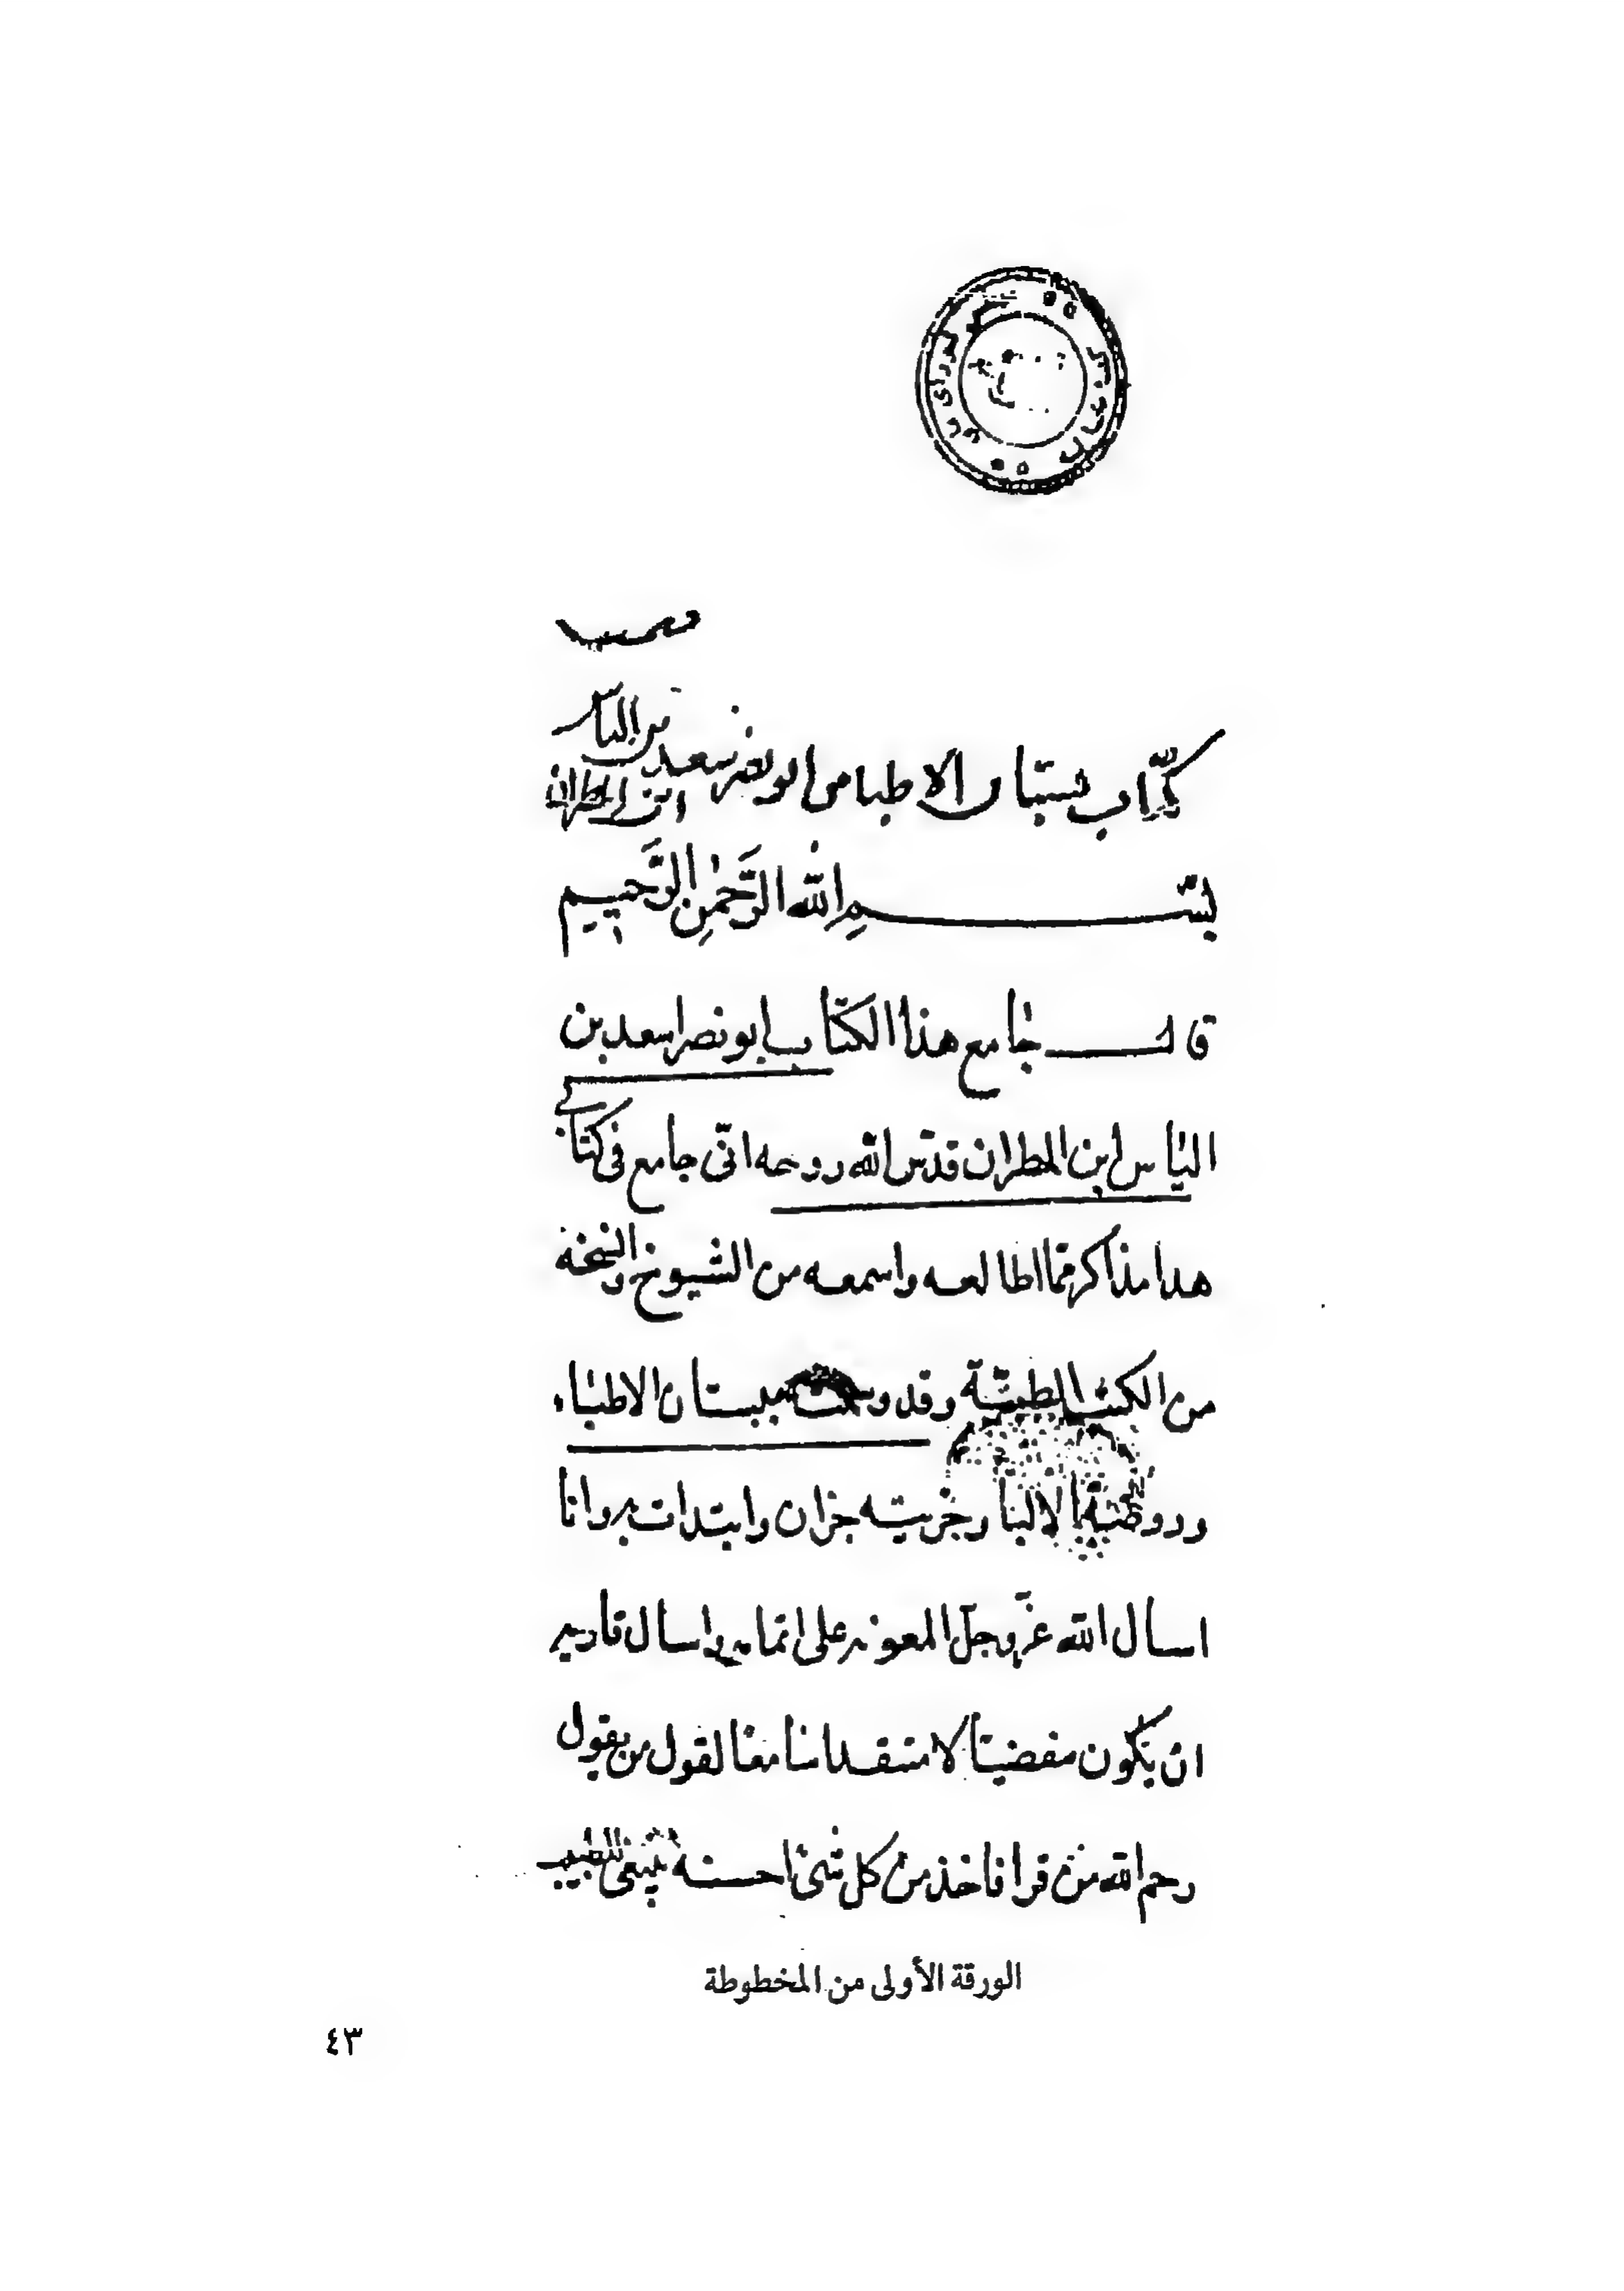 كتاب بستان الاطبا من ابو نصر سعيد بن الياس
ابن المطران
بسم الله الرحمن الرحيم
قال جامع هذا الكتاب ابو نصر اسعد بن
الياس ابن المطران قدس الله روحه انى جامع فى كتابى
هدا مذاكرة مما اطالعه واسمعه من الشيوخ وانسخه
من الكتب الطبية وقد وسمته ببستان الاطباء
وروضة الالبا وجزيته جزان وابتدات به وانا
اسال الله عز وجل المعونه على اتمامه واسال قاريه
ان يكون مفضيا لا منتقدا سامعا لقول من يقول
رحم الله من قرا فاخذ من كل شئ احسنه ينبغى للطبيب
الورقة الأولى من المخطوطة
٤٣